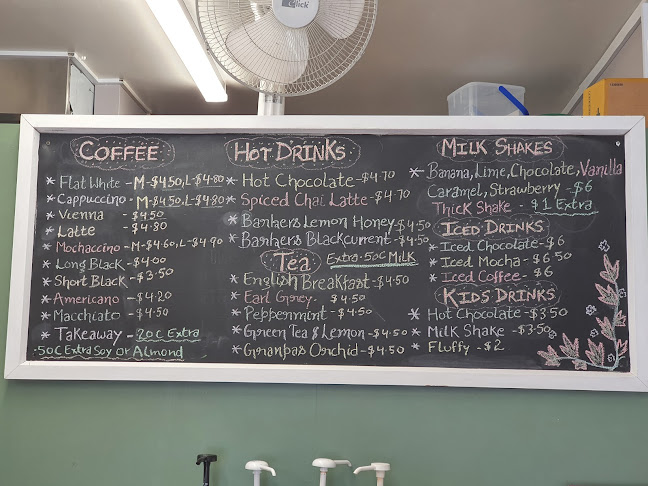 Click
COFFEE
* Flat White - M-$4.50, L-$4.80
* Cappuccino - M-$4.50, L-$4.80
* Vienna - $4.50
* Latte - $4.80
* Mochaccino - M-$4.60, L-$4.90
* Long Black - $4.00
* Short Black - $3.50
* Americano - $4.20
* Macchiato - $4.50
* Takeaway - 20c Extra
.50c Extra Soy or Almond
HOT DRINKS
* Hot Chocolate - $4.70
* Spiced Chai Latte - $4.70
* Barkers Lemon Honey - $4.50
* Barkers Blackcurrent - $4.50
Tea Extra .50c MILK
* English Breakfast - $4.50
* Earl Grey $4.50
* Peppermint - $4.50
* Green Tea & Lemon - $4.50
* Granpas Orchid - $4.50
MILK SHAKES
* Banana, Lime, Chocolate, Vanilla
Caramel, Strawberry - $6
Thick Shake - $1 Extra
ICED DRINKS
* Iced Chocolate - $6
* Iced Mocha - $6.50
* Iced Coffee - $6
KIDS DRINKS
* Hot Chocolate - $3.50
* Milk Shake - $3.50
* Fluffy - $2